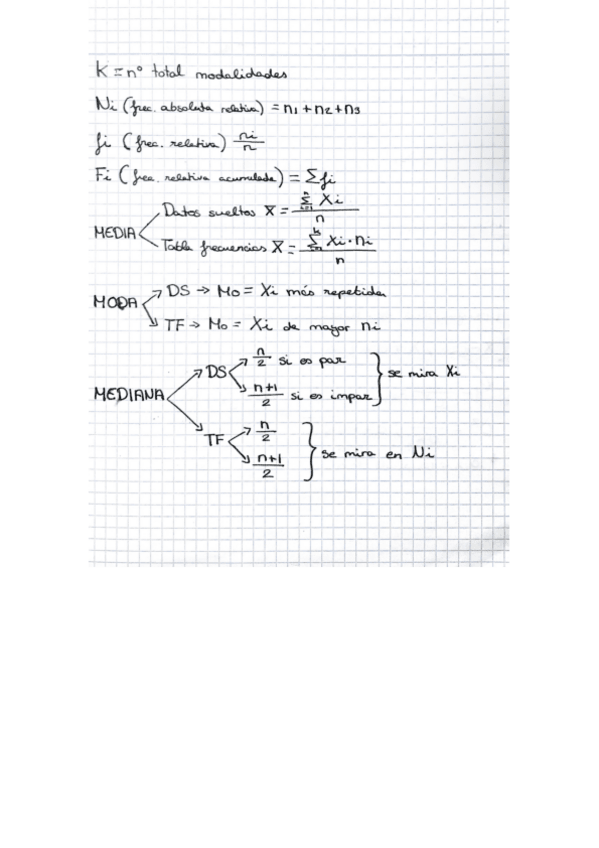 K = nº total modalidades
Ni (frec. absoluta relativa) = n1 + n2 + n3
fi (frec. relativa) ni/n
Fi (frec. relativa acumulada) = Σfi
MEDIA
Datos sueltos x̄ = Σ Xi / n
Tabla frecuencias x̄ = Σ Xi·ni / n
MODA
DS → Mo = Xi más repetida
TF → Mo = Xi de mayor ni
MEDIANA
DS
n/2 si es par
n+1/2 si es impar
se mira Xi
TF
n/2
n+1/2
se mira en Ni